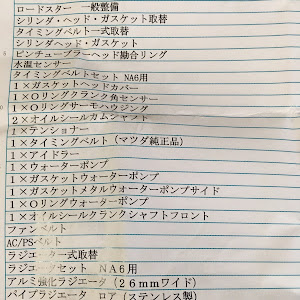 ロードスター 一般整備
シリンダ・ヘッド・ガスケット取替
タイミングベルト一式取替
シリンダヘッド・ガスケット
ピンチューブラーヘッド勘合リング
水温センサー
タイミングベルトセット NA6用
1×ガスケットヘッドカバー
1×Oリングクランク角センサー
1×Oリングサーモハウジング
2×オイルシールカムシャフト
1×テンショナー
1×タイミングベルト(マツダ純正品)
1×アイドラー
1×ウォーターポンプ
1×ガスケットウォーターポンプ
1×ガスケットメタルウォーターポンプサイド
1×Oリングウォーターポンプ
1×オイルシールクランクシャフトフロント
ファンベルト
AC/PSベルト
ラジエーター式取替
ラジエタセット NA6用
アルミ強化ラジエータ(26mmワイド)
パイプラジエータ ロア(ステンレス製)